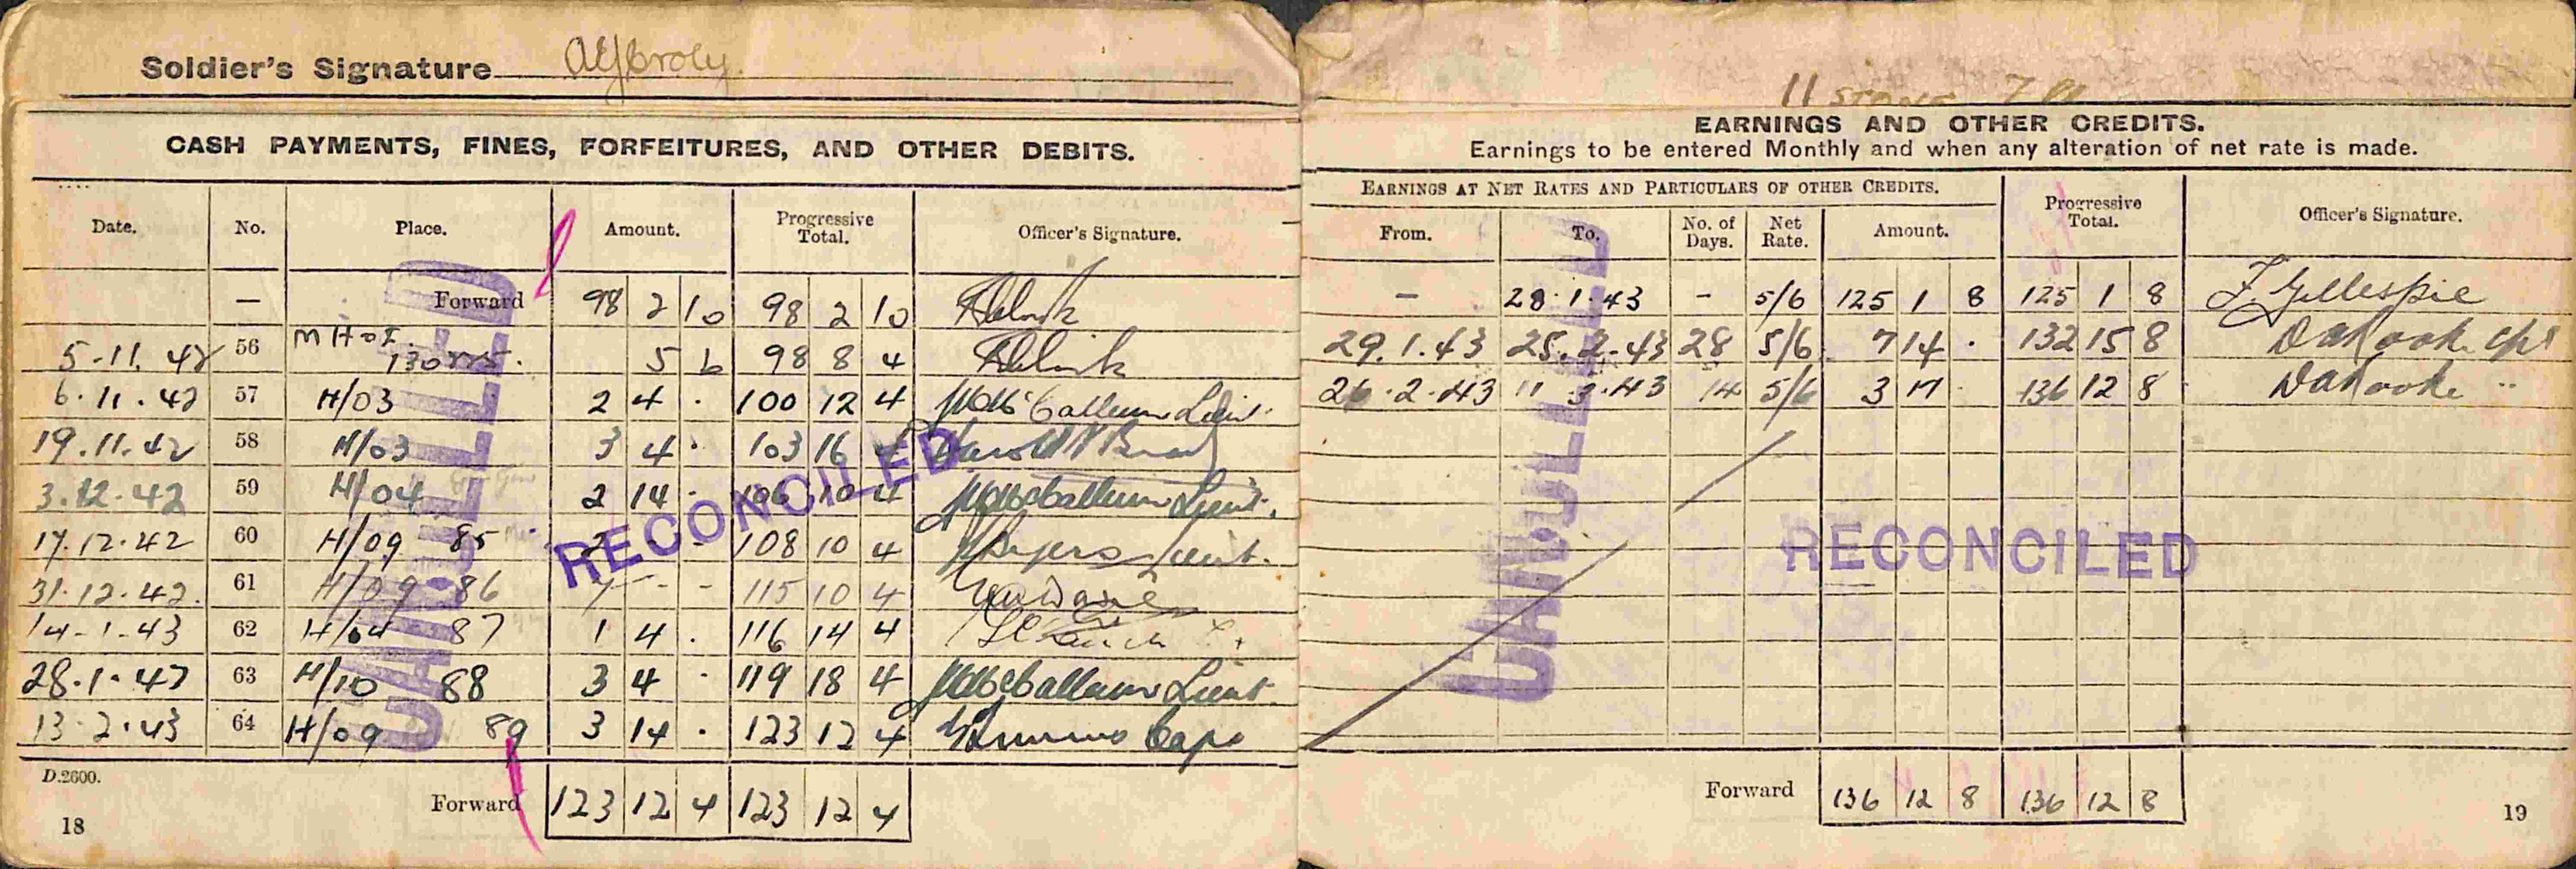 Soldier's Signature
CASH PAYMENTS, FINES, FORFEITURES, AND OTHER DEBITS.
Date. No. Place. Amount. Progressive Total. Officer's Signature.
— Forward 98 2 10 98 2 10
5-11. 42 56 M H of I. 5 6 98 8 4
6.11.42 57 H/03 2 4 . 100 12 4 McCallum Lieut.
19.11.42 58 H/03 3 4 . 103 16 4 Harold
3.12.42 59 H/04 2 14 . 106 10 4 McCallum Lieut.
17.12.42 60 H/09 85 2 - - 108 10 4 Lieut.
31.12.42. 61 H/09 86 7 - - 115 10 4
14-1-43 62 H/04 87 1 4 . 116 14 4
28.1.43 63 H/10 88 3 4 . 119 18 4 McCallum Lieut.
13.2.43 64 H/09 89 3 14 . 123 12 4 Capt
D.2600.
Forward 123 12 4 123 12 4
18
CANCELLED
RECONCILED
11 STONE 7
EARNINGS AND OTHER CREDITS.
Earnings to be entered Monthly and when any alteration of net rate is made.
EARNINGS AT NET RATES AND PARTICULARS OF OTHER CREDITS.
From. To. No. of Days. Net Rate. Amount. Progressive Total. Officer's Signature.
— 28.1.43 - 5/6 125 1 8 125 1 8 F. Gillespie
29.1.43 25.2.43 28 5/6 7 14 . 132 15 8 Cpl
26.2.43 11 3.43 14 5/6 3 17 . 136 12 8 "
CANCELLED
RECONCILED
Forward 136 12 8 136 12 8
19